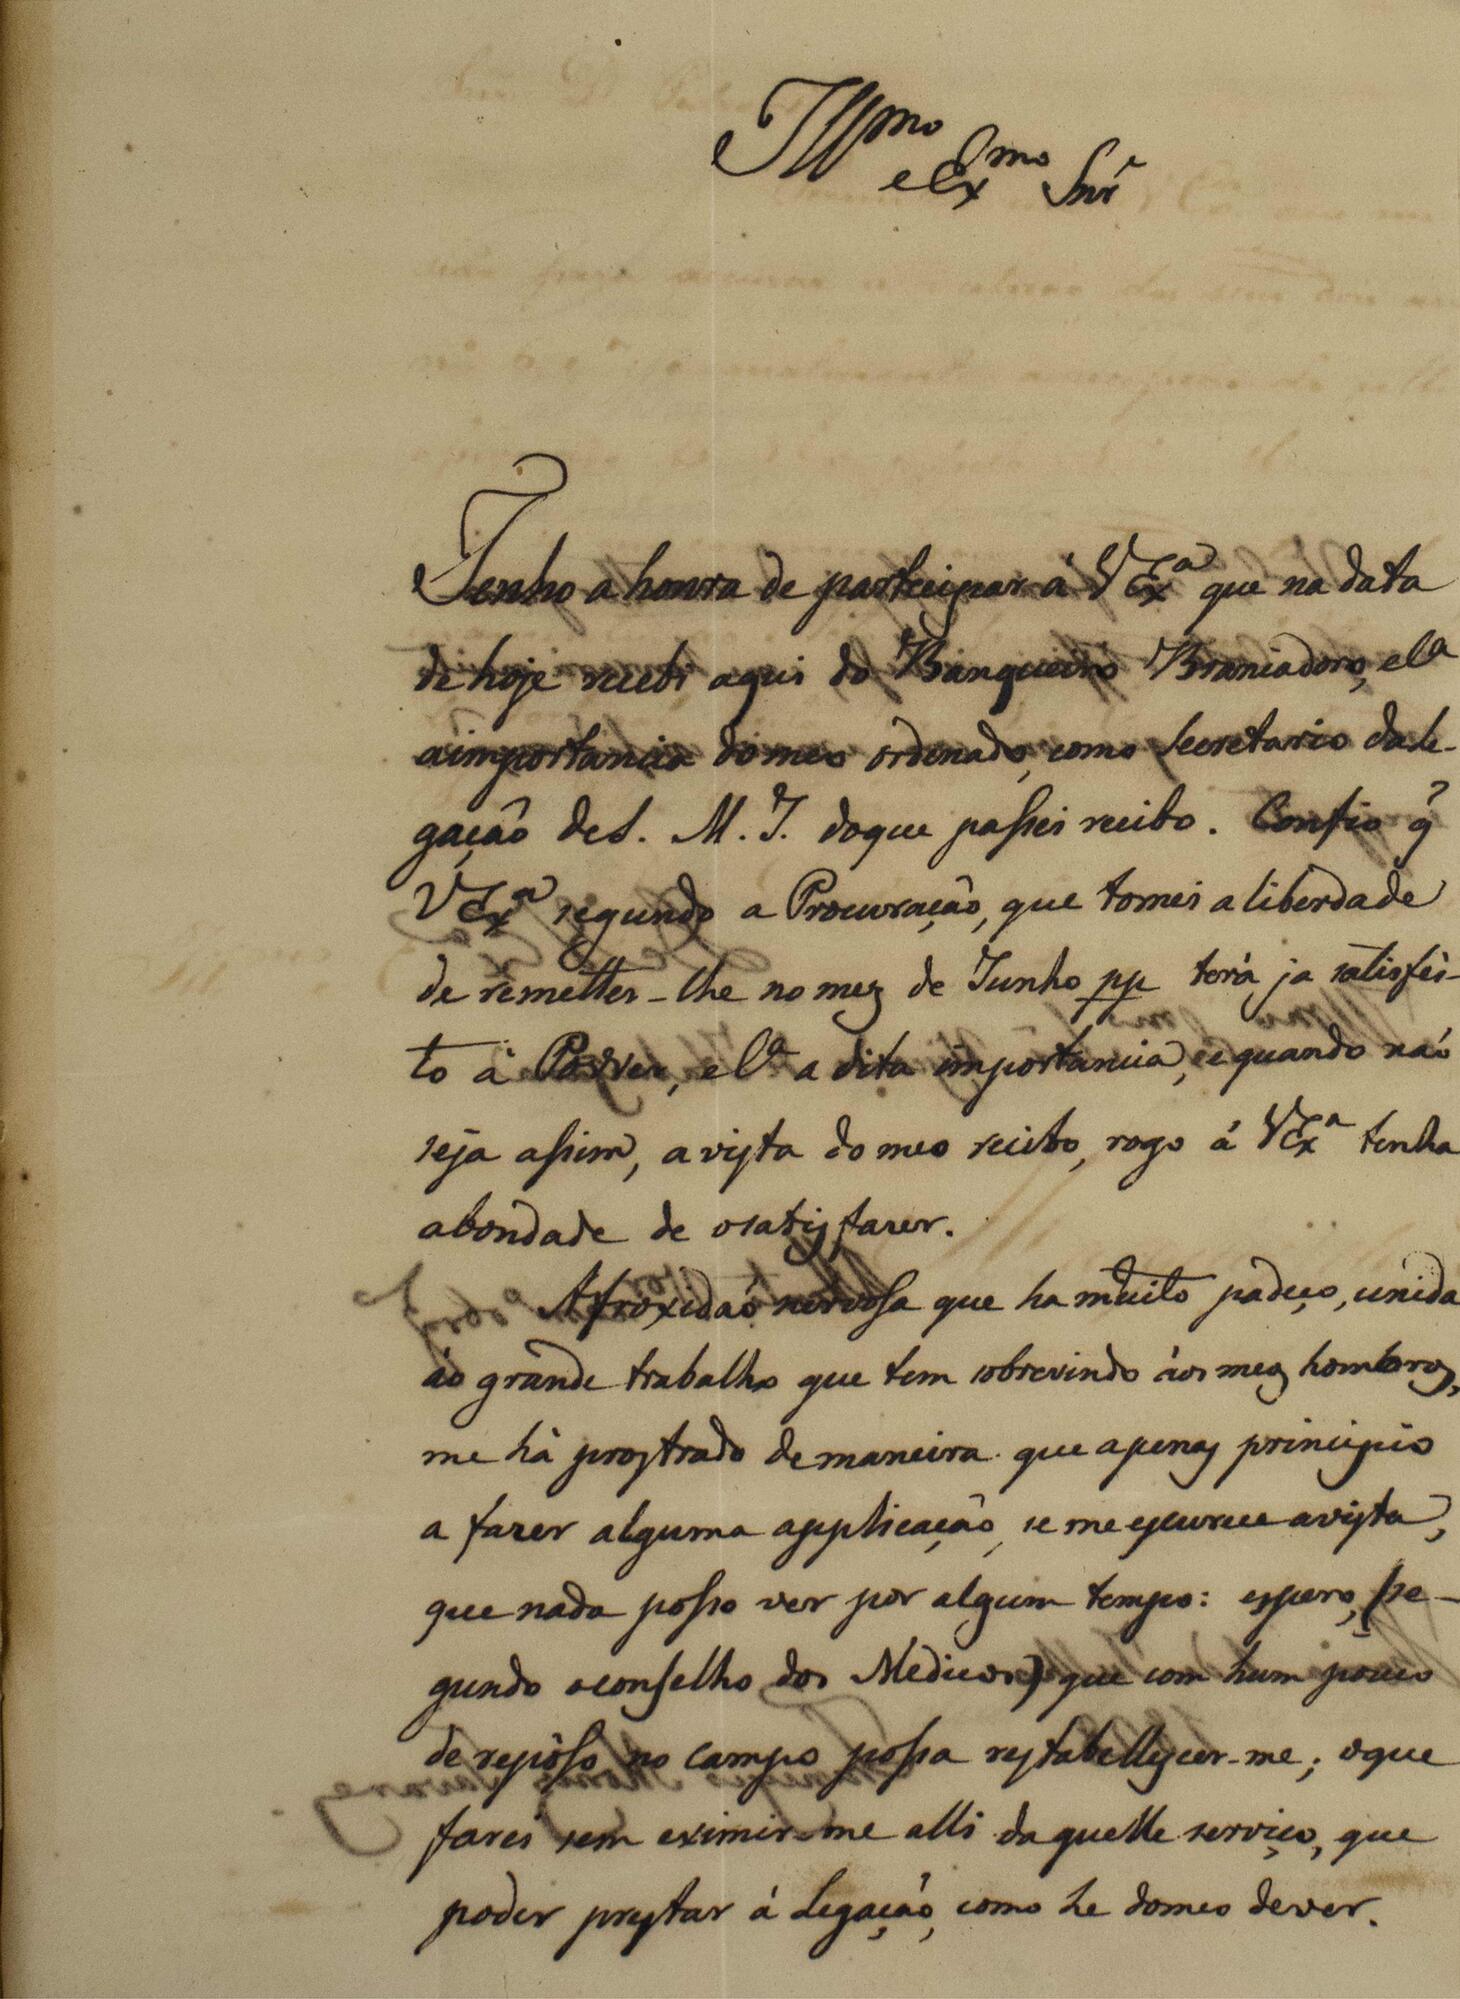 Illmo
e Exmo Snr
Tenho a honra de participar á VExa que na data
de hoje recebi aqui do Banqueiro Braniadoro, e Ca
a importancia do meo ordenado, como Secretario da Le-
gação de S. M. I. do que passei recibo. Confio q̃
VExa segundo a Procuração, que tomei a liberdade
de remetter-lhe no mez de Junho pp terá ja satisfei-
to à e Ca a dita importancia, e quando não
seja assim, a vista do meo recibo, rogo á VExa tenha
a bondade de o satisfazer.
A froxidaõ nervosa que ha muito padeço, unida
áo grande trabalho que tem sobrevindo áos meos hombros,
me há prostrado de maneira que apenas principio
a fazer alguma applicação, se me escurece a vista,
que nada posso ver por algum tempo: espero, (se-
gundo o conselho dos Medicos) que com hum pouco
de repôso no campo possa restabellescer-me; o que
farei sem eximir-me alli daquelle serviço, que
poder prestar á Legação, como he do meo dever.